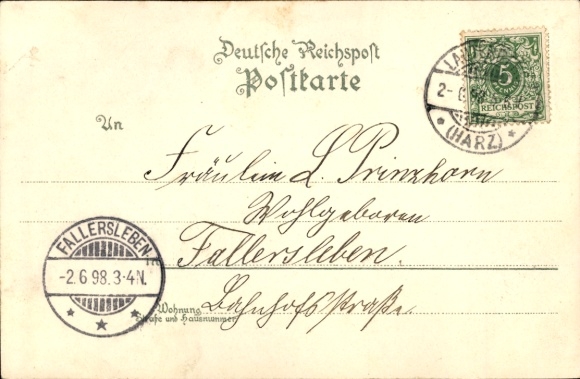 Deutsche Reichspost
Postkarte
5
REICHSPOST
2-6 98
(HARZ)
An
Fräulein L. Prinzhorn
Wohlgeboren
Fallersleben.
Bahnhofsstraße.
Wohnung
Straße und Hausnummer
FALLERSLEBEN
-2.6 98.3-4N.